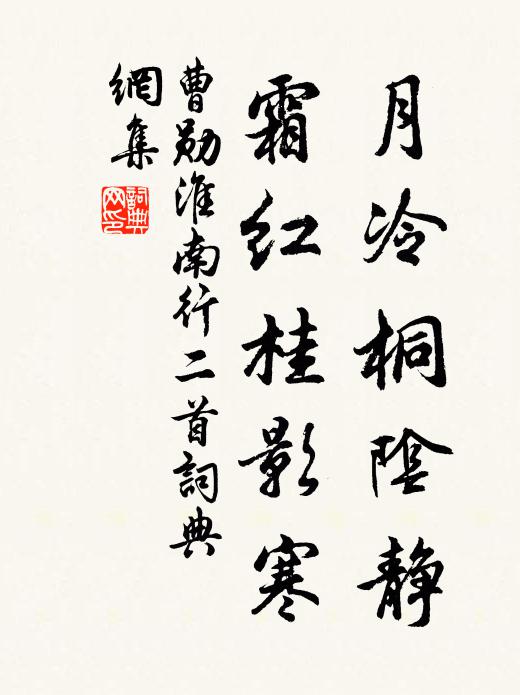 月冷桐陰静
霜红桂影寒
曹勛淮南行二首詞典
網集
詞典網印